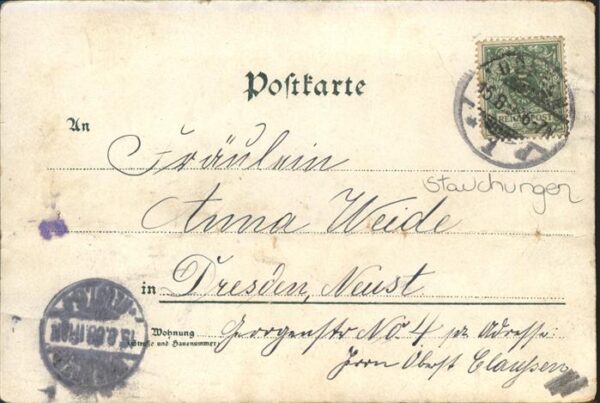 Postkarte
REICHSPOST
An
Fräulein
Stauchungen
Anna Weide
in Dresden, Neust
Wohnung
(Straße und Hausnummer)
Georgenstr No. 4 pr Adresse:
Herrn Oberst Claußen